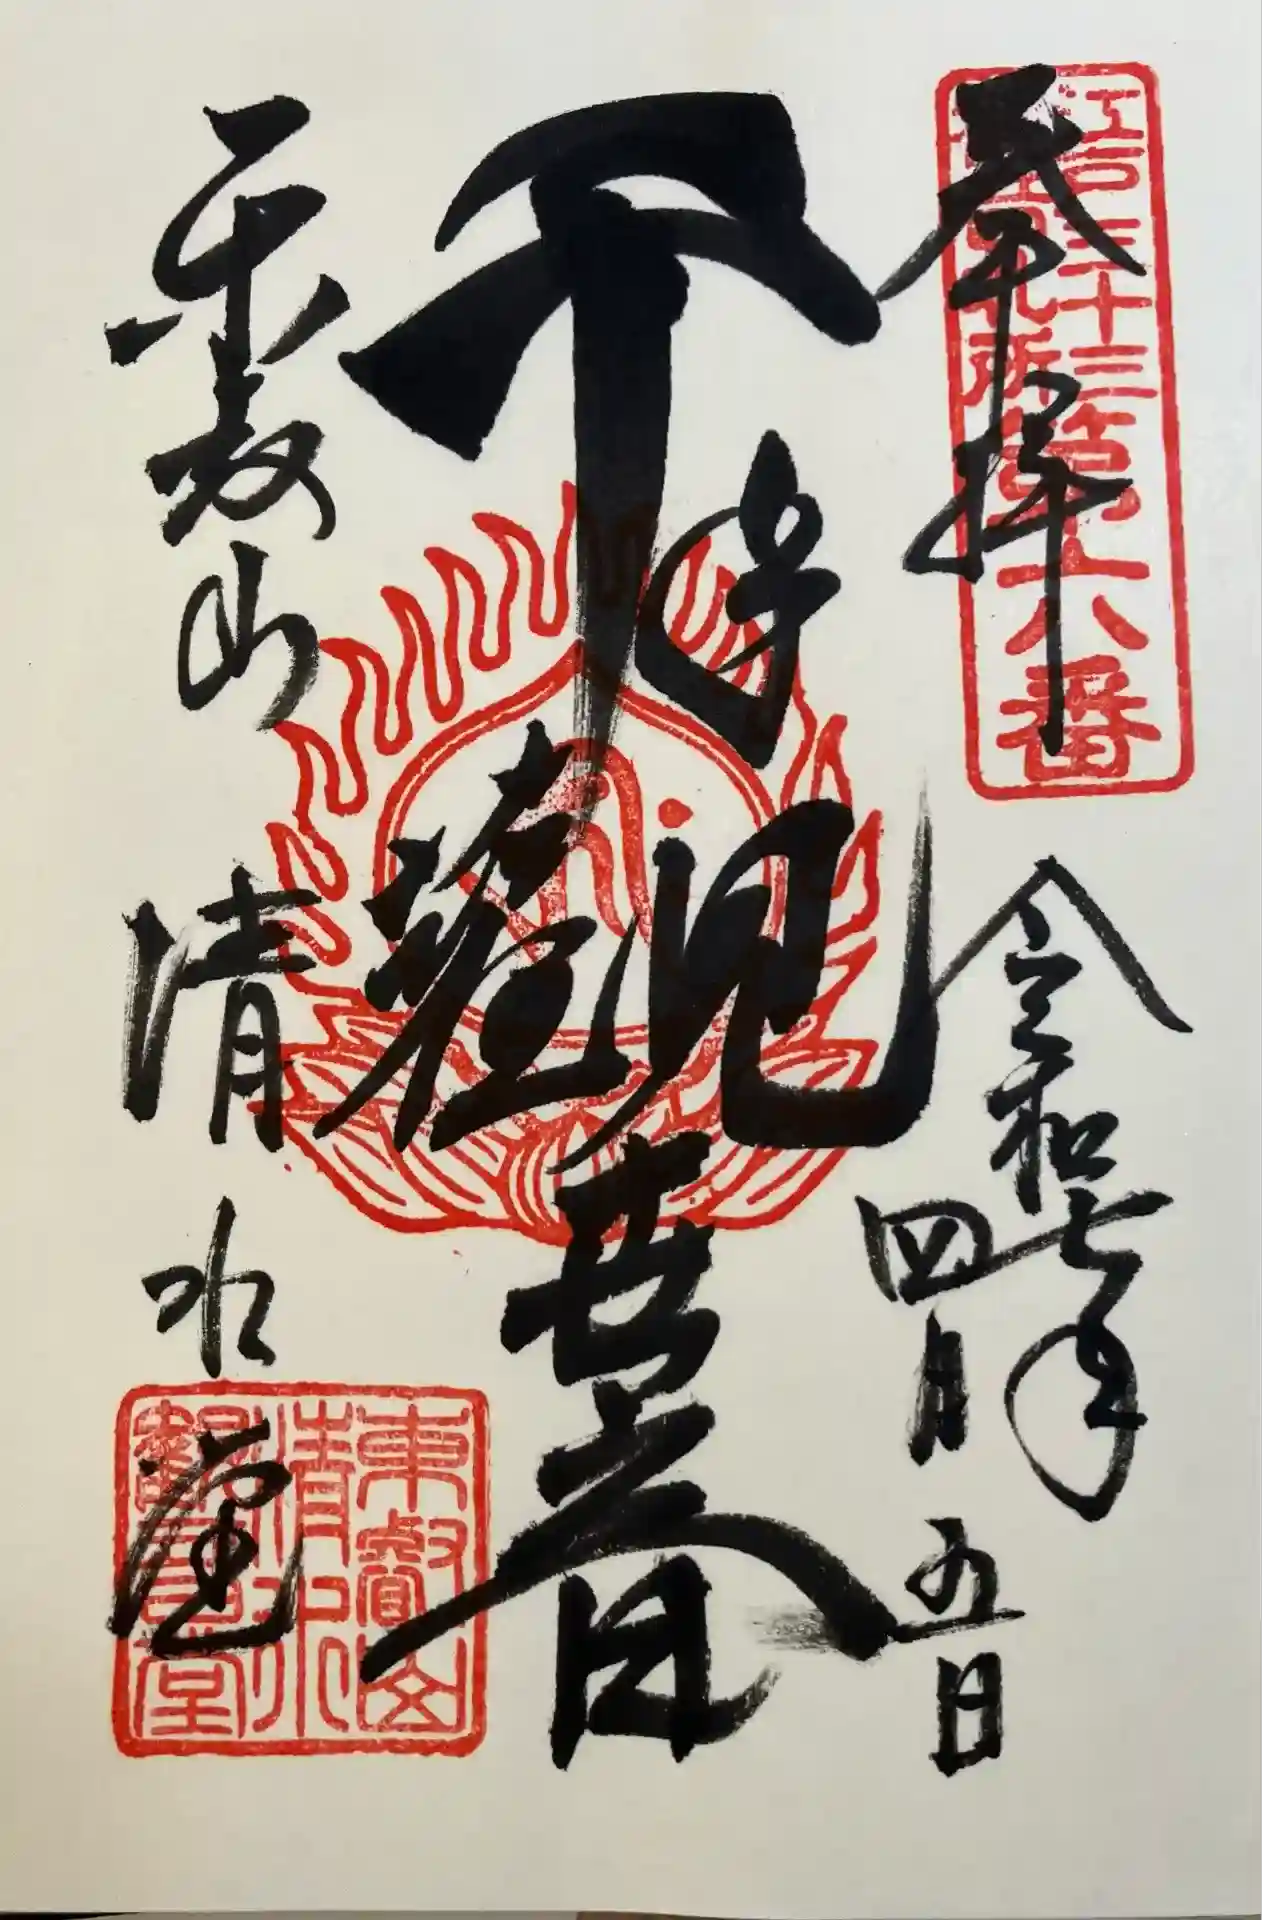 江戸三十三
観音札所
第六番
奉拝
令和七年
四月五日
千手觀世音
東叡山
清水堂
東叡山
清水
觀音堂